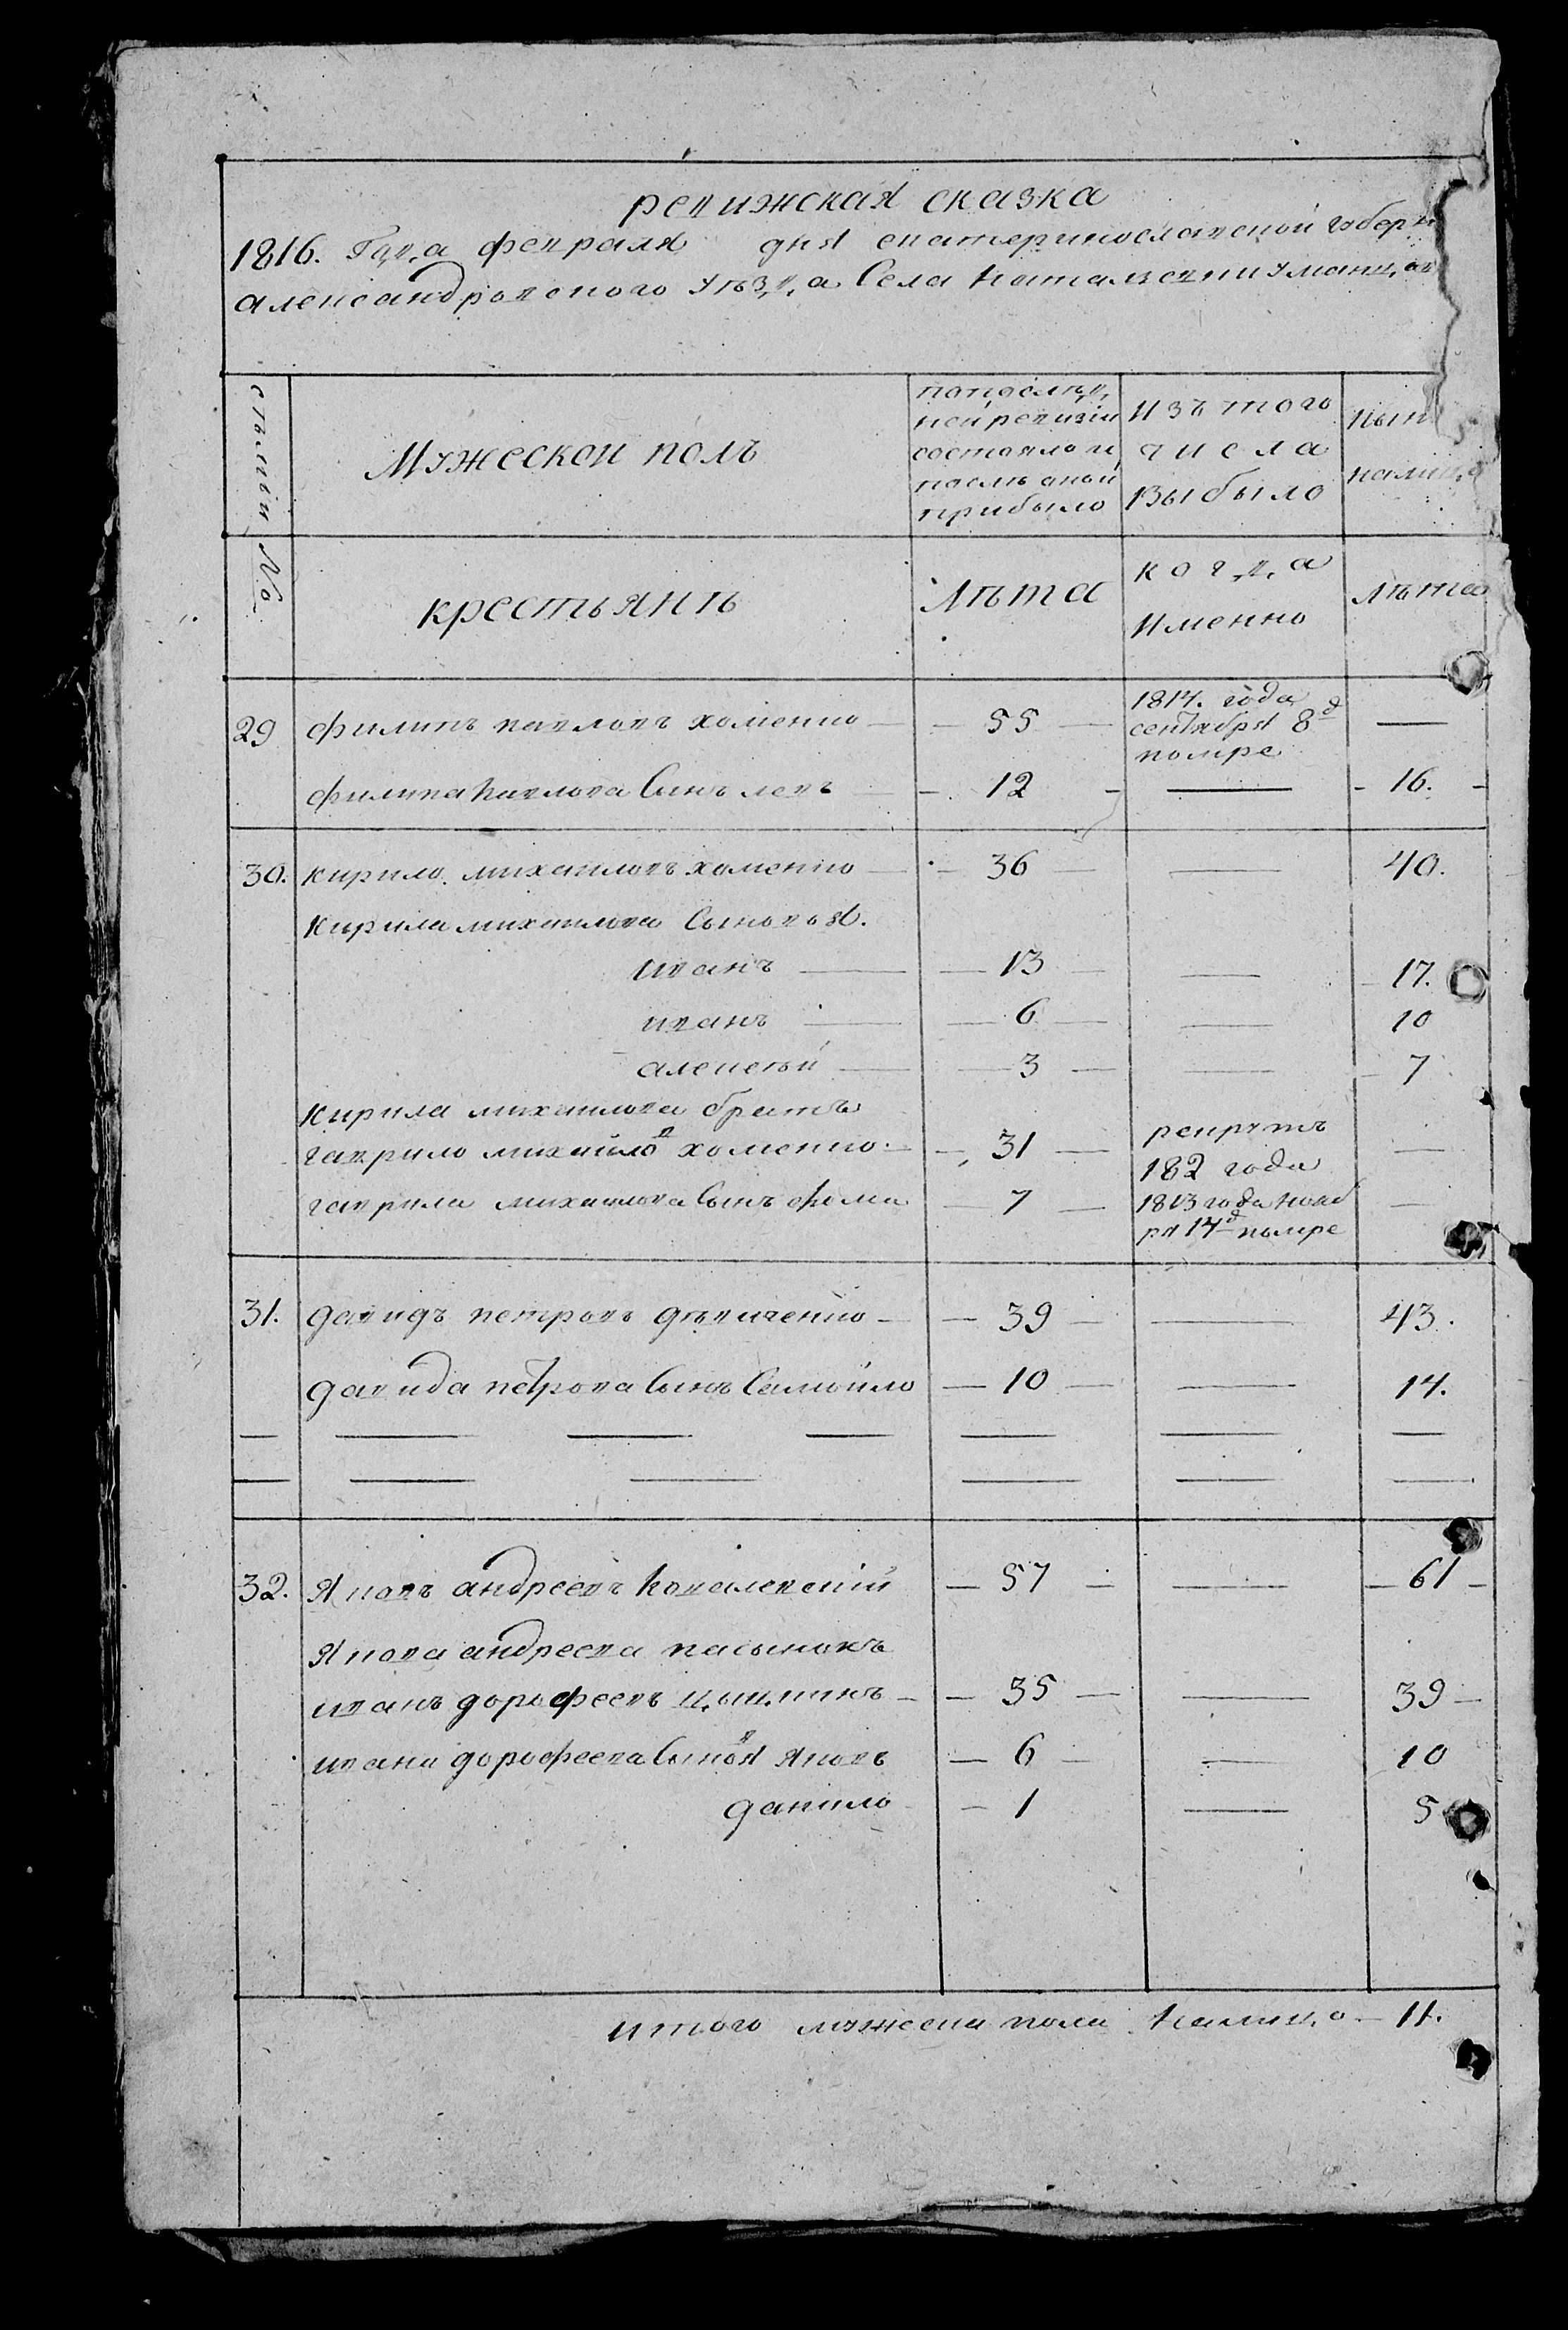 ревижская сказка
1816. Года февраля дня екатеринославской губерн
александровского уѣзда Села Натальевки Уманцов
семьи №
Мужескои полъ
попослѣд
ней ревизіи
состояло и
послѣ оной
прибыло
изъ того
числа
выбыло
ныне
налицо
крестьянъ
Лѣта
когда
именно
Лѣта
29 филипъ павловъ хоменко 55 1814. года
сентября 8д
помре
филипа павлова Сынъ левъ 12 16.
30. кирило михаиловъ хоменко 36 40.
кирила михаилова Сыновья.
иванъ 13 17.
иванъ 6 10
алексѣй 3 7
кирила михаилова братъ
гаврило михайловъ хоменко 31 рекрутъ
182 года
гаврила михаилова Сынъ фома 7 1813 года нояб
ря 14д помре
31. давидъ петровъ дѣвиченко 39 43.
давида петрова Сынъ Самойло 10 14.
32. Яковъ андреевъ Ковалевскій 57 61
Якова андреева пасынокъ
иванъ дорофеевъ 35 39
ивана дорофеева Сыновя яковъ 6 10
данило 1 5
итого мужеска пола налицо 11.